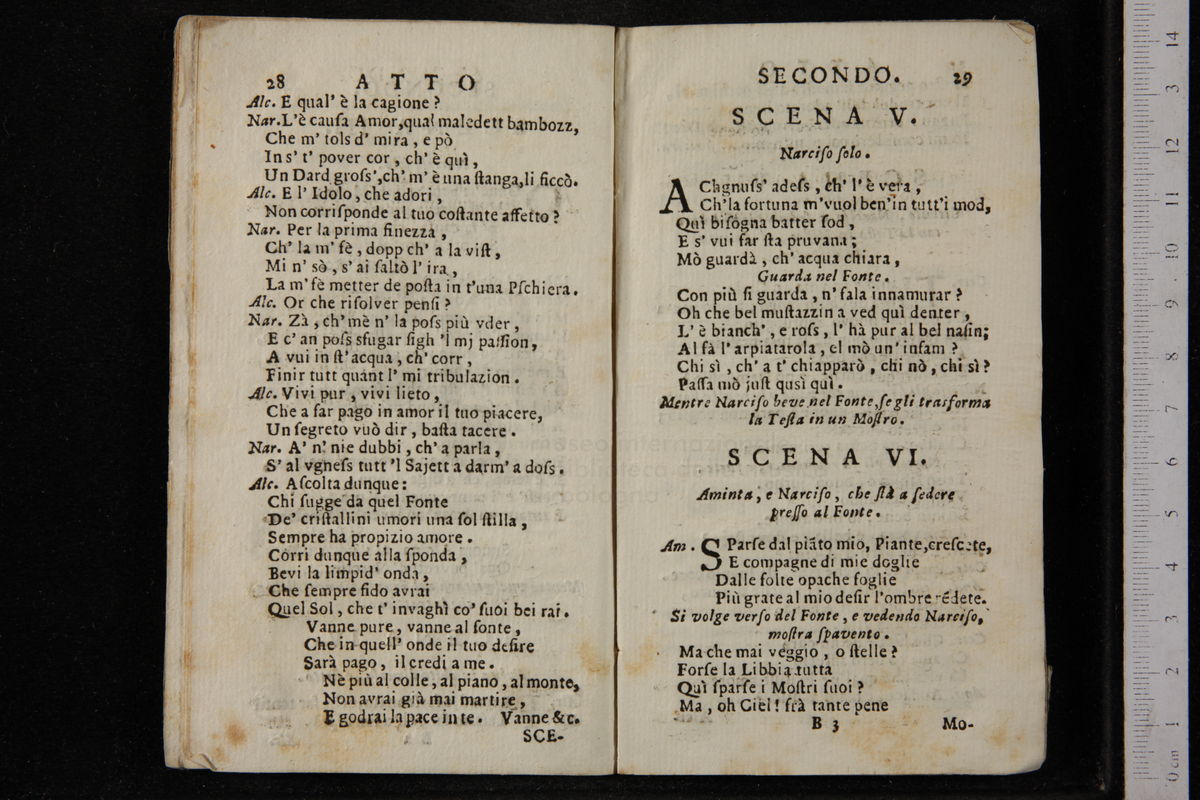 28 ATTO
Alc. E qual' è la cagione?
Nar. L'è cauſa Amor, qual maledett bambozz,
Che m' tols d' mira, e pò
In s' t' pover cor, ch' è quì,
Un Dard groſs', ch' m' è una ſtanga, li ficcò.
Alc. E l' Idolo, che adori,
Non corriſponde al tuo coſtante affetto?
Nar. Per la prima finezza,
Ch' la m' fè, dopp ch' a la viſt,
Mi n' sò, s' ai ſaltò l' ira,
La m' fè metter de poſta in t'una Pſchiera.
Alc. Or che riſolver penſi?
Nar. Zà, ch' mè n' la poſs più vder,
E c' an poſs sfugar ſigh 'l mj paſſion,
A vui in ſt' acqua, ch' corr,
Finir tutt quant l' mi tribulazion.
Alc. Vivi pur, vivi lieto,
Che a far pago in amor il tuo piacere,
Un ſegreto vuò dir, baſta tacere.
Nar. A' n' nie dubbi, ch' a parla,
S' al vgneſs tutt 'l Sajett a darm' a doſs.
Alc. Aſcolta dunque:
Chi ſugge da quel Fonte
De' criſtallini umori una ſol ſtilla,
Sempre ha propizio amore.
Corri dunque alla ſponda,
Bevi la limpid' onda,
Che ſempre fido avrai
Quel Sol, che t' invaghì co' ſuoi bei rai.
Vanne pure, vanne al fonte,
Che in quell' onde il tuo deſire
Sarà pago, il credi a me.
Nè più al colle, al piano, al monte,
Non avrai già mai martire,
E godrai la pace in te. Vanne &c.
SCE-
SECONDO. 29
SCENA V.
Narciſo ſolo.
A Chgnuſs' adeſs, ch' l' è vera,
Ch' la fortuna m'vuol ben' in tutt' i mod,
Quì biſogna batter ſod,
E s' vui far ſta pruvana;
Mò guardà, ch' acqua chiara,
Guarda nel Fonte.
Con più ſi guarda, n' fala innamurar?
Oh che bel muſtazzin a ved quì denter,
L' è bianch', e roſs, l' hà pur al bel naſin;
Al fà l' arpiatarola, el mò un' infam?
Chi sì, ch' a t' chiapparò, chi nò, chi sì?
Paſſa mò juſt qusì quì.
Mentre Narciſo beve nel Fonte, ſe gli trasforma
la Teſta in un Moſtro.
SCENA VI.
Aminta, e Narciſo, che ſtà a ſedere
preſſo al Fonte.
Am. SParſe dal piãto mio, Piante, creſcete,
E compagne di mie doglie
Dalle folte opache foglie
Più grate al mio deſir l'ombre rẽdete.
Si volge verſo del Fonte, e vedendo Narciſo,
moſtra ſpavento.
Ma che mai veggio, o ſtelle?
Forſe la Libbia tutta
Quì ſparſe i Moſtri ſuoi?
Ma, oh Ciel! frà tante pene
B 3 Mo-